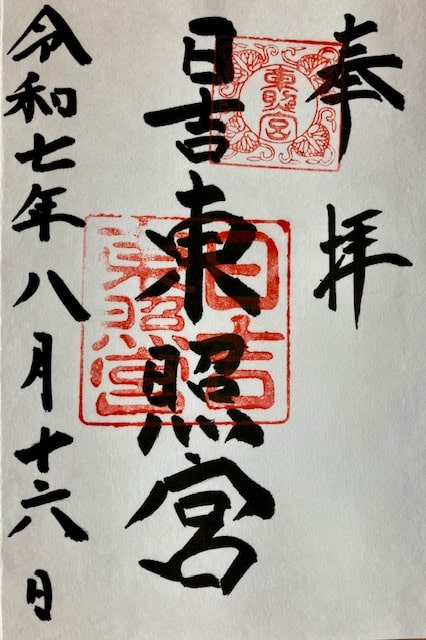 奉拝
東照宮
日吉東照宮
日吉東照宮
令和七年八月十六日